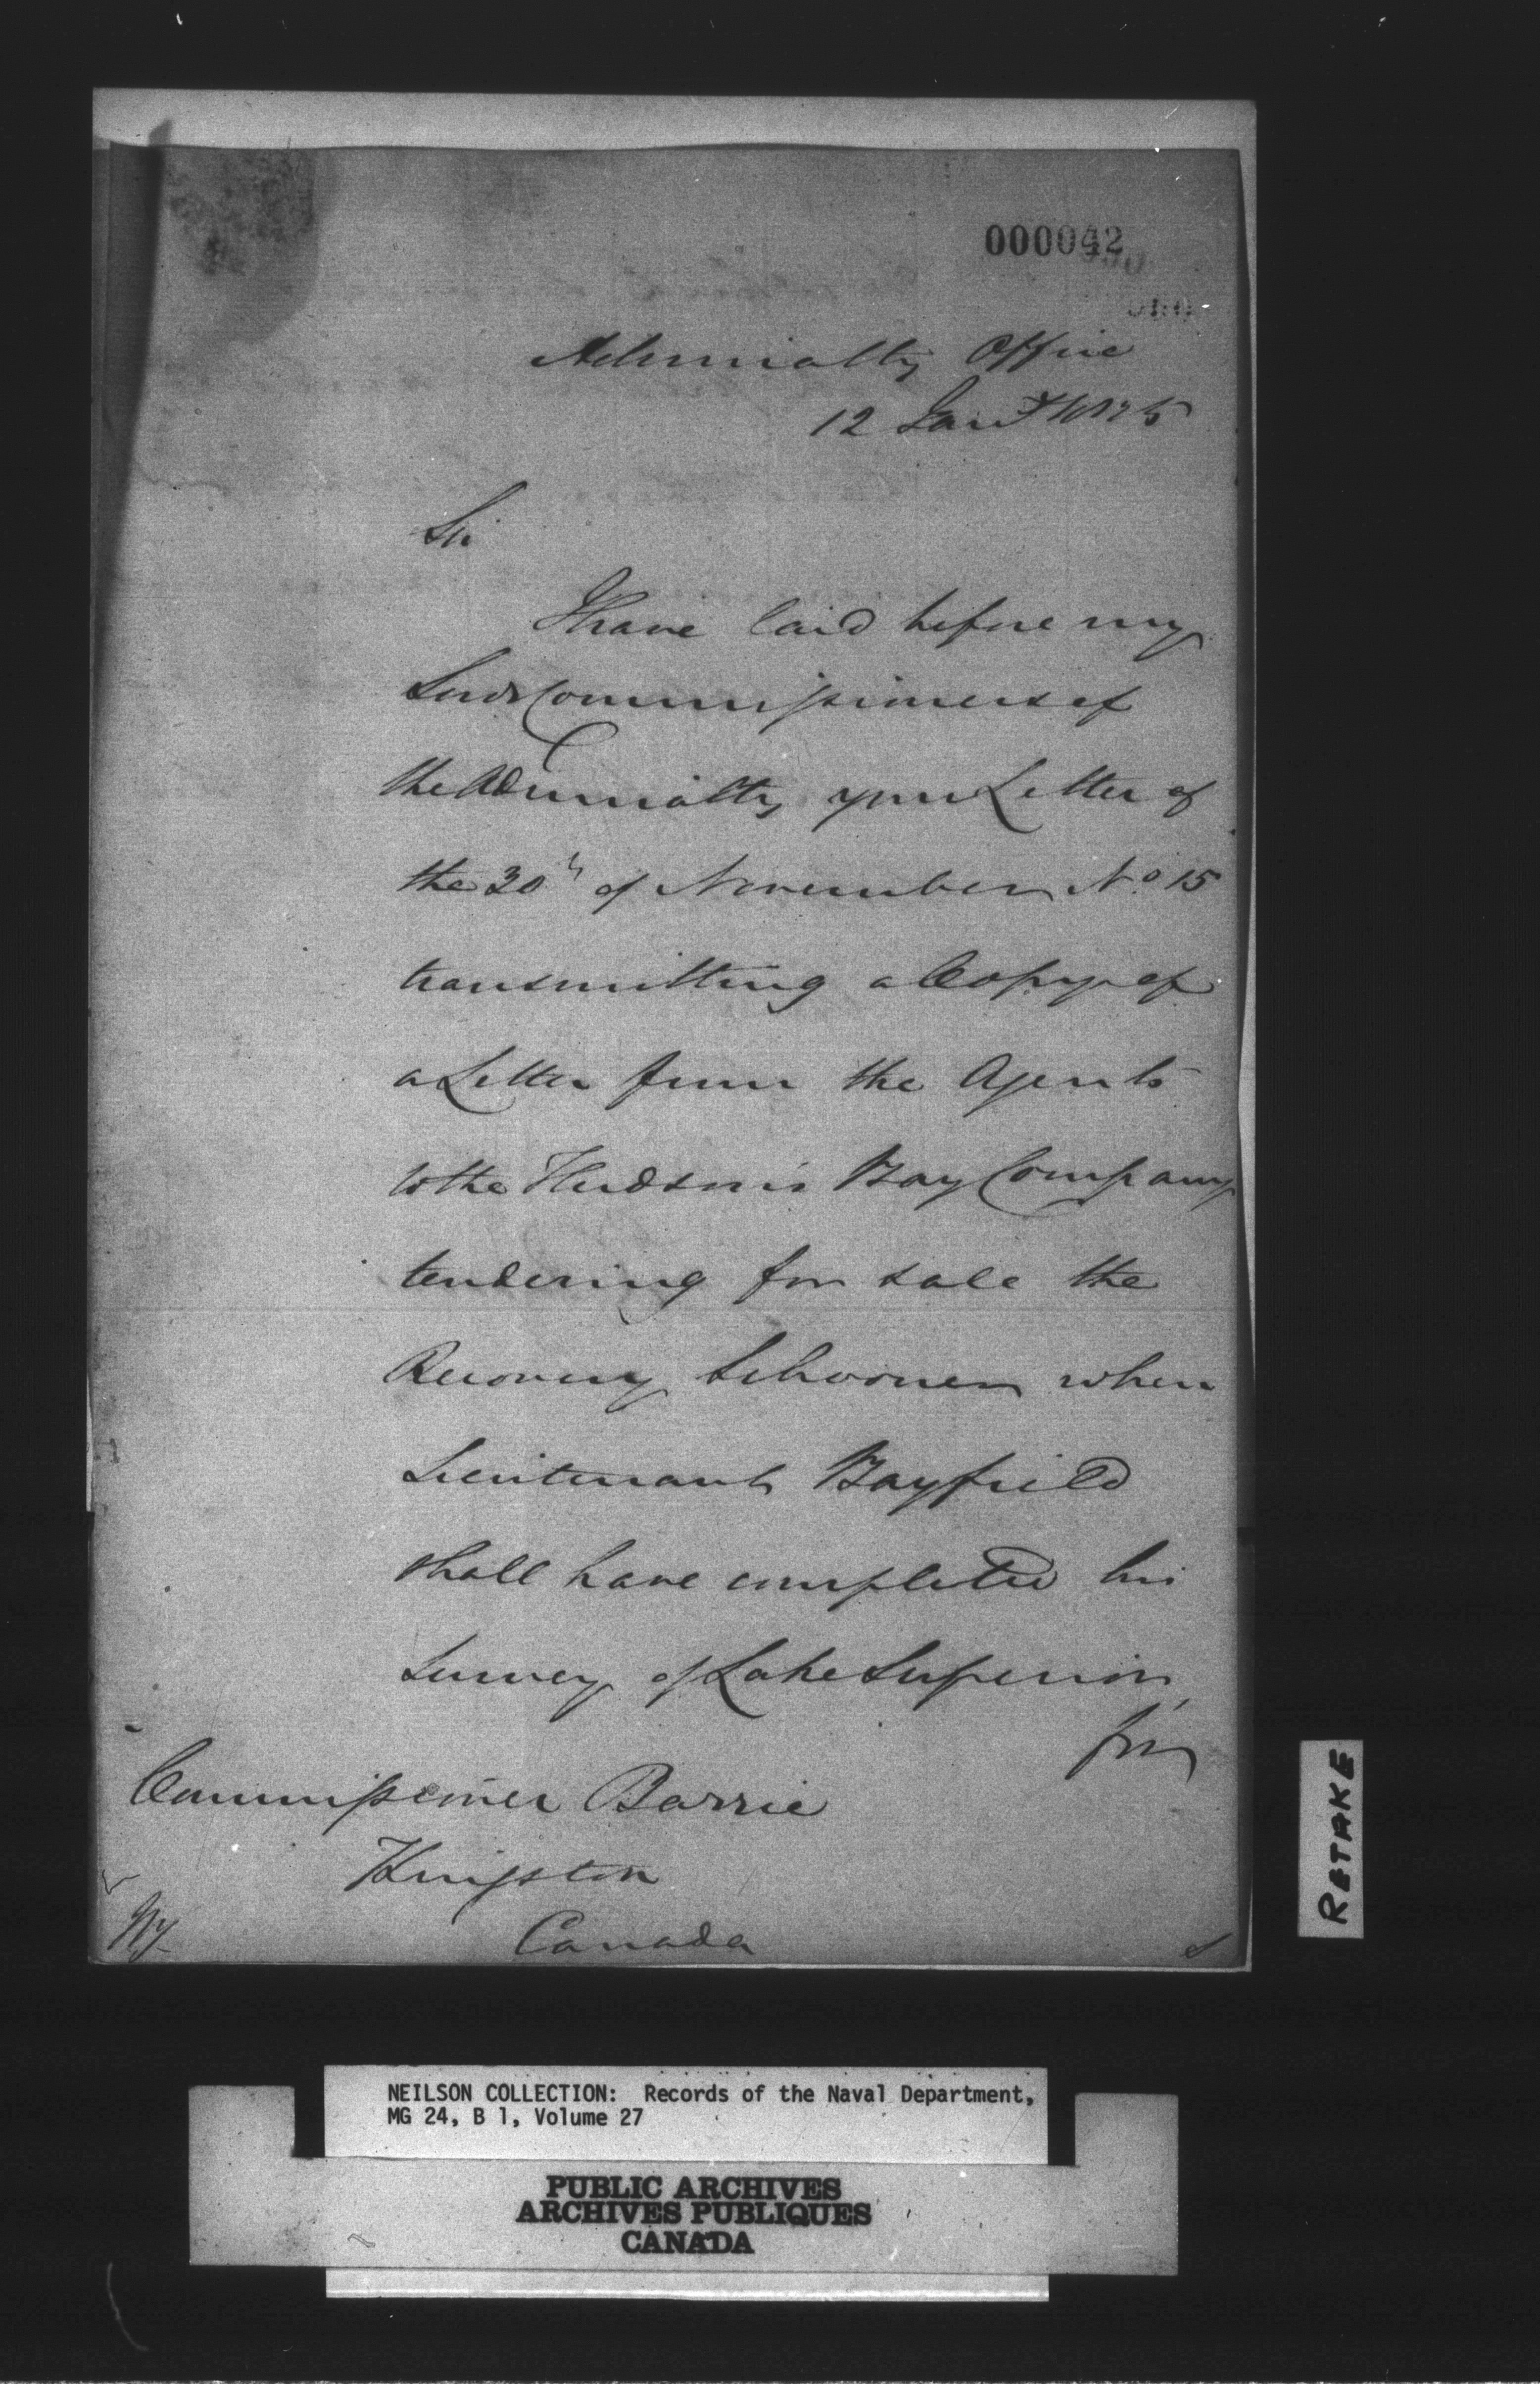 000042
Admiralty Office
12 Jany 1825
Sir
I have laid before my
Lords Commissioners of
the Admiralty your Letter of
the 30th of November No 15
transmitting a Copy of
a Letter from the Agents
to the Hudson's Bay Company
tendering for sale the
Recovery Schooner when
Lieutenant Bayfield
shall have completed his
Survey of Lake Superior,
for
Commissioner Barrie
Kingston
Canada
RETAKE
NEILSON COLLECTION: Records of the Naval Department,
MG 24, B 1, Volume 27
PUBLIC ARCHIVES
ARCHIVES PUBLIQUES
CANADA